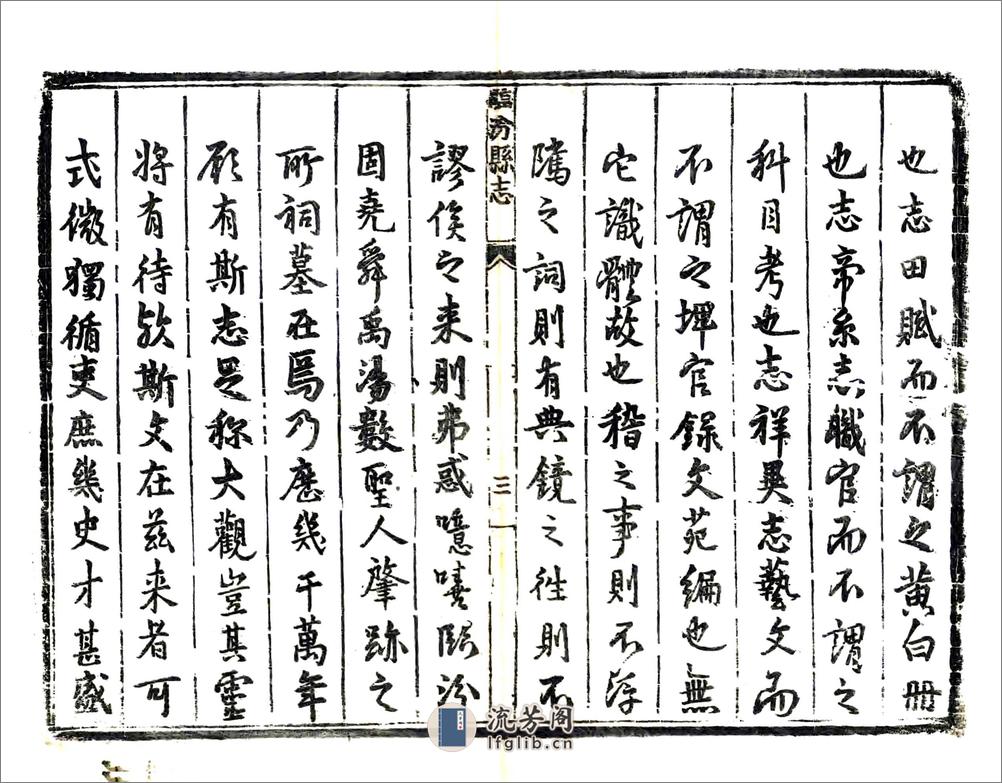 也志田賦而不謂之黄白冊
也志帝系志職官而不謂之
科目考也志祥異志藝文而
不謂之埤官錄文苑編也無
它識體故也稽之事則不浮
隲之詞則有典鏡之往則不
臨汾縣志
三
謬俟之来則弗惑噫嘻臨汾
固堯舜禹湯數聖人肇跡之
所祠墓在焉乃歷幾千萬年
頋有斯志足称大觀豈其靈
将有待於斯文在茲来者可
式微獨循吏庶幾史才甚盛
流芳阁
lfglib.cn